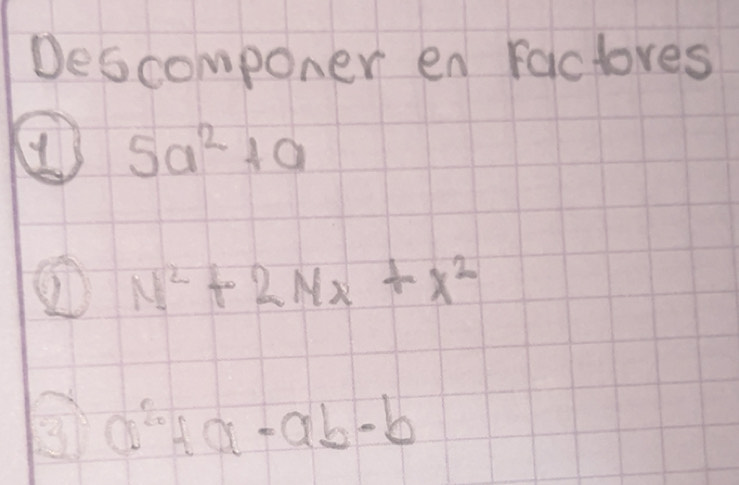 Descomponer en Factores
① 5a² + a
② N² + 2Nx + x²
③ a² + a - ab - b